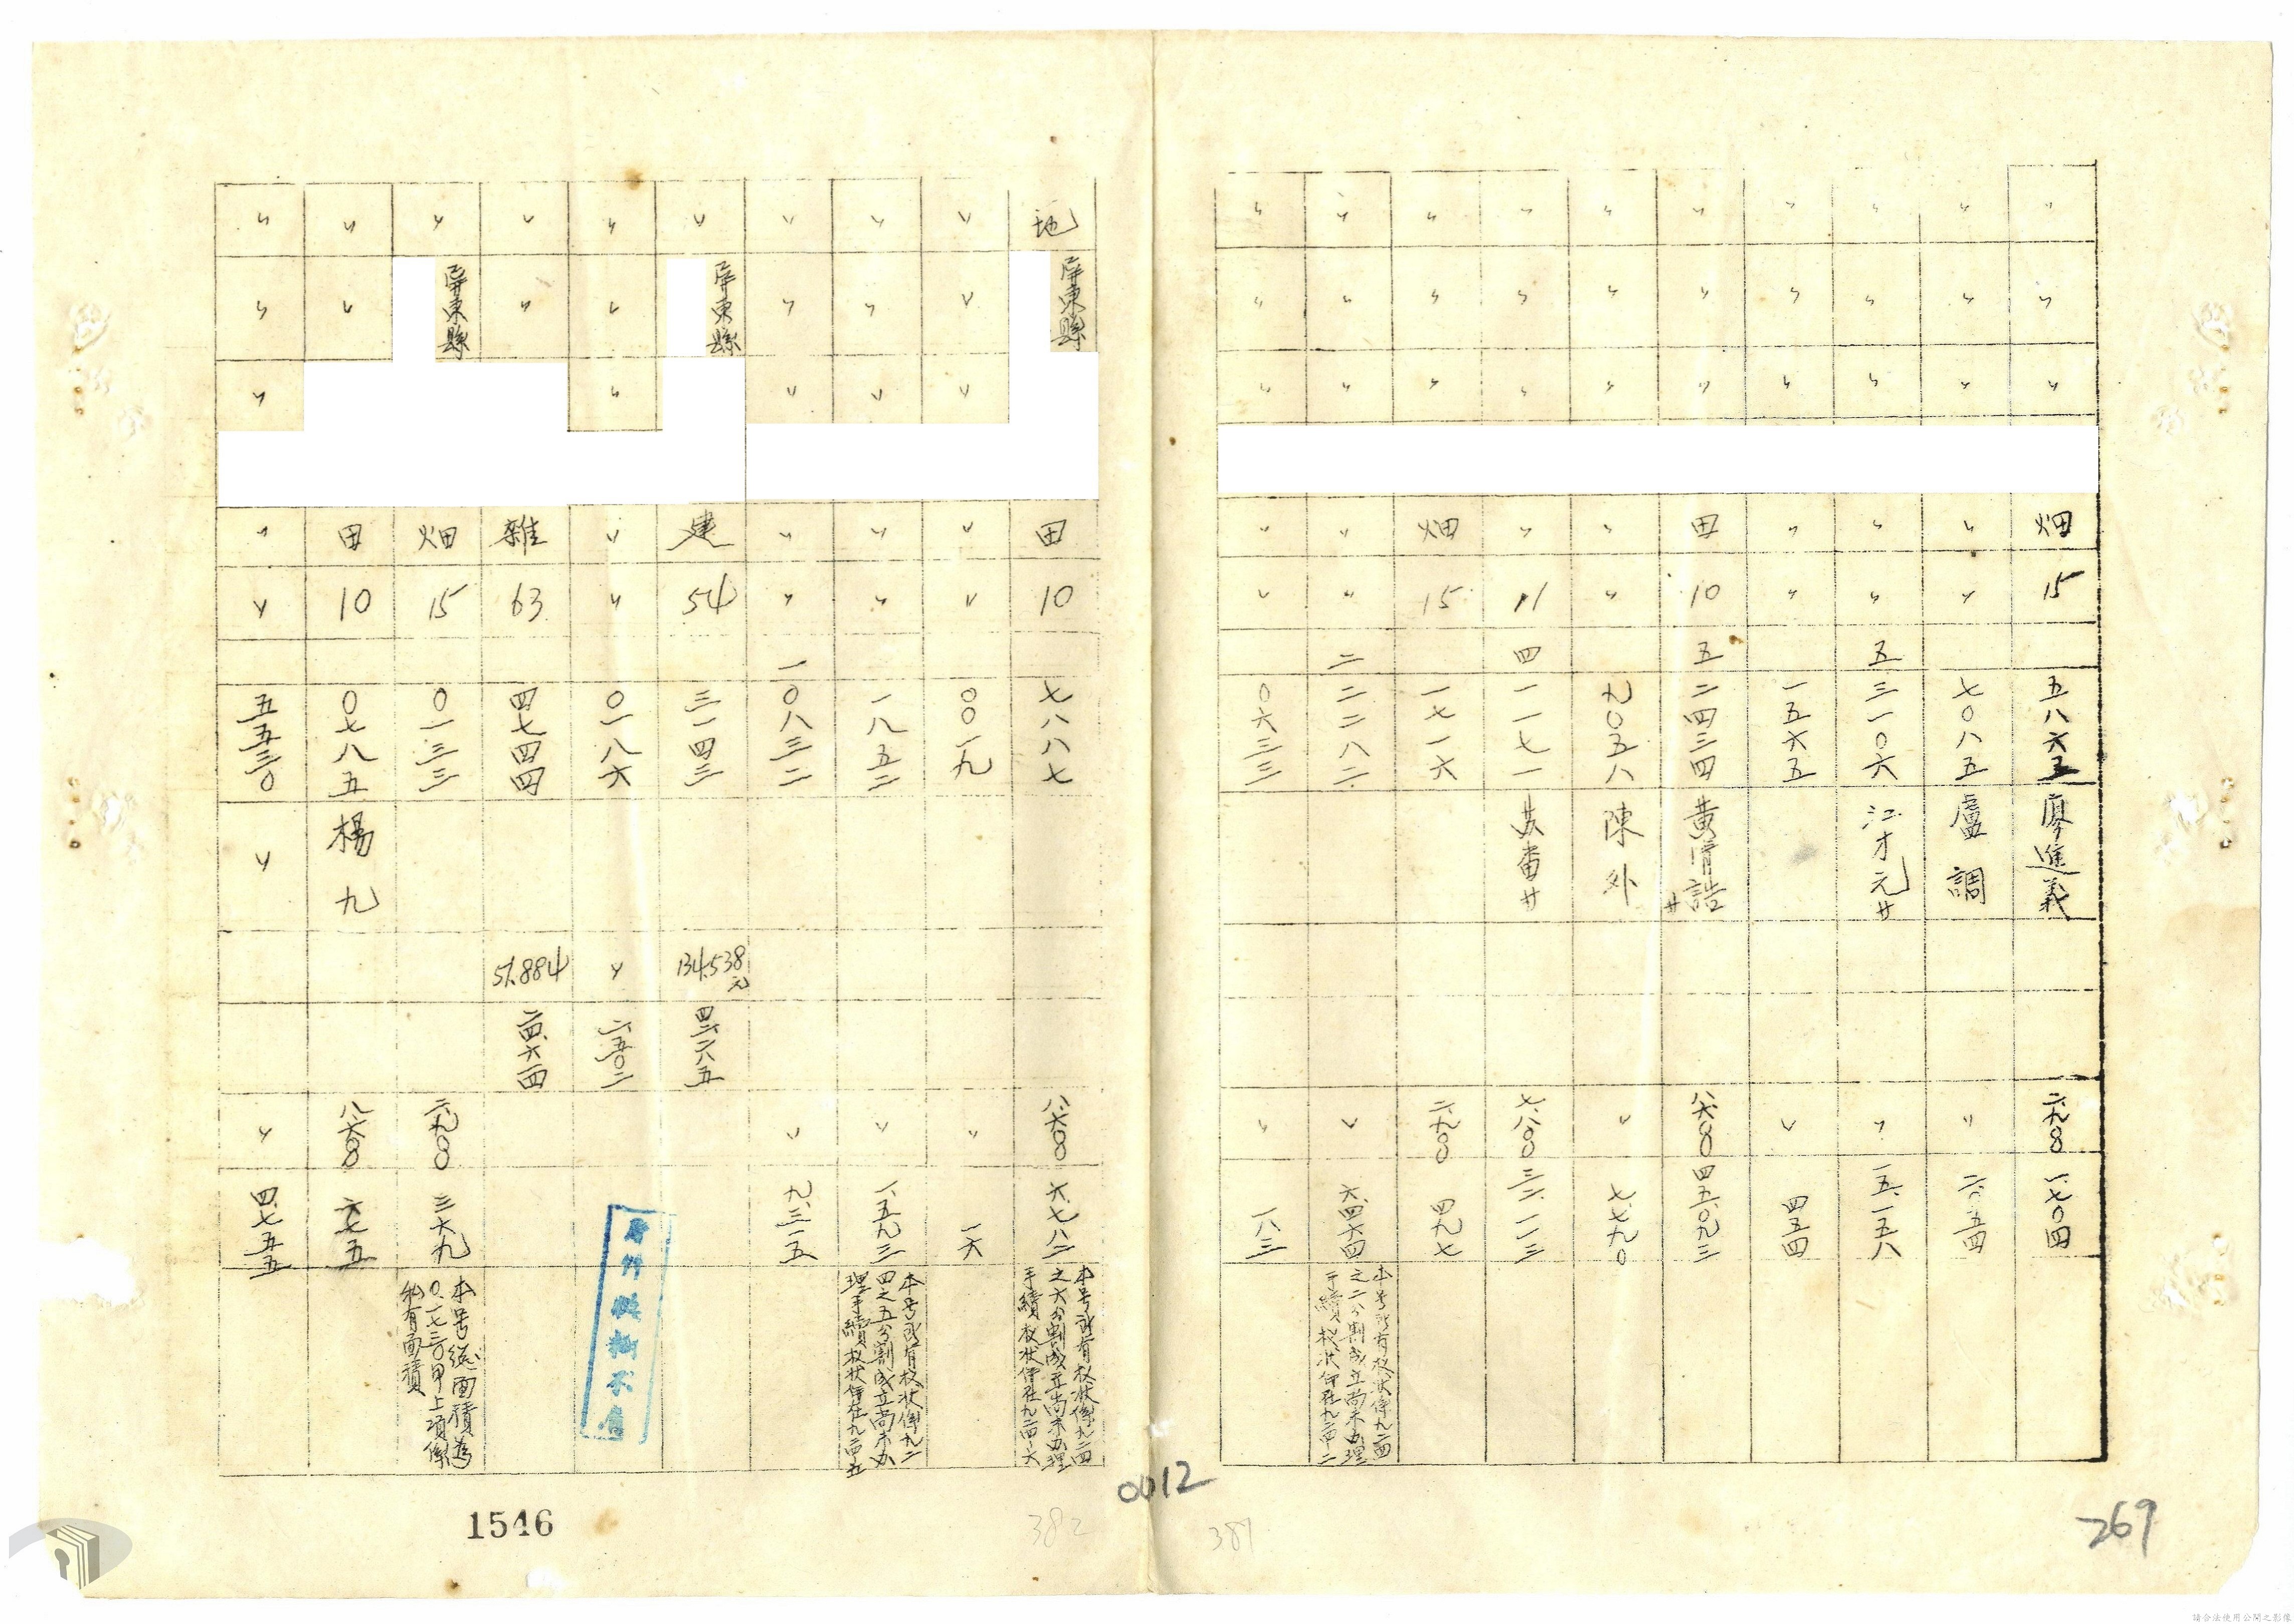 〃 〃 〃 畑 15 五八六五 廖進義 二.九〇〇 一.七〇四
〃 〃 〃 〃 〃 七〇八五 盧調 〃 二.〇五四
〃 〃 〃 〃 〃 五 三一〇六 江才元 廿 〃 一五.一五八
〃 〃 〃 〃 〃 一五六五 〃 四五四
〃 〃 〃 田 10 五 二四三四 八.六〇〇 四五.〇九三
〃 〃 〃 〃 〃 九〇五八 陳外 〃 七.七九〇
〃 〃 〃 〃 11 四 一一七一 七.八〇〇 三二.一一三
〃 〃 〃 畑 15 一七一六 二.九〇〇 四九七
〃 〃 〃 〃 〃 二 二二八二 〃 六.四六四
本号所有权状係九二四
之二分割成立尚未办理
手續权状仍在九二四二
〃 〃 〃 〃 〃 〇六三三 〃 一八三
269
387
地 屏東縣 田 10 七八八七 八.六〇〇 六.七八二
本号所有权状係九二四
之六分割成立尚未办理
手續权状仍在九二四六
〃 〃 〃 〃 〃 〇〇一九 〃 一六
〃 〃 〃 〃 〃 一八五二 〃 一.五九三
本号所有权状係九二
四之五分割成立尚未办
理手續权状仍在九二四五
〃 〃 〃 〃 〃 一 〇八三二 〃 九.三一五
〃 屏東縣 建 54 三一四三 134.538元 四二.二八五
〃 〃 〃 〃 〃 〇一八六 〃 二.五〇二
〃 〃 雜 63 四七四四 51.884 二四.六一四
〃 屏東縣 畑 15 〇一三三 二.九〇〇 三六九
本号總面積為
〇.一七三〇甲上項係
私有面積
〃 〃 田 10 〇七八五 楊九 八.六〇〇 六七五
〃 〃 〃 〃 〃 五五三〇 〃 〃 四.七五五
0012
382
1546
請合法使用公開之影像